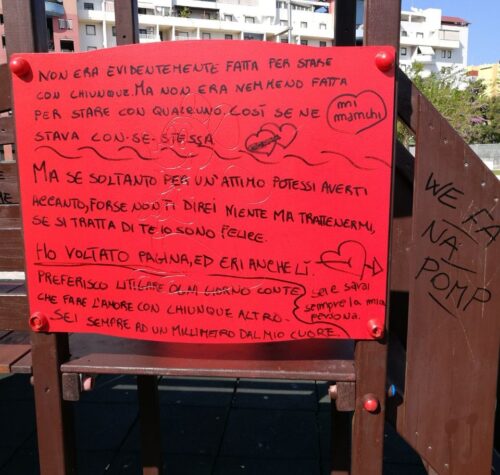 NON ERA EVIDENTEMENTE FATTA PER STARE
CON CHIUNQUE. MA NON ERA NEMMENO FATTA
PER STARE CON QUALCUNO. COSÌ SE NE
STAVA CON-SE-STESSA
mi
manchi
MA SE SOLTANTO PER UN'ATTIMO POTESSI AVERTI
ACCANTO, FORSE NON TI DIREI NIENTE MA TRATTENERMI,
SE SI TRATTA DI TE IO SONO FELICE.
HO VOLTATO PAGINA, ED ERI ANCHE LÌ.
PREFERISCO LITIGARE OGNI GIORNO CON TE
CHE FARE L'AMORE CON CHIUNQUE ALTRO.
SEI SEMPRE AD UN MILLIMETRO DAL MIO CUORE.
sei e sarai
sempre la mia
persona.
WE FA
NA
POMP